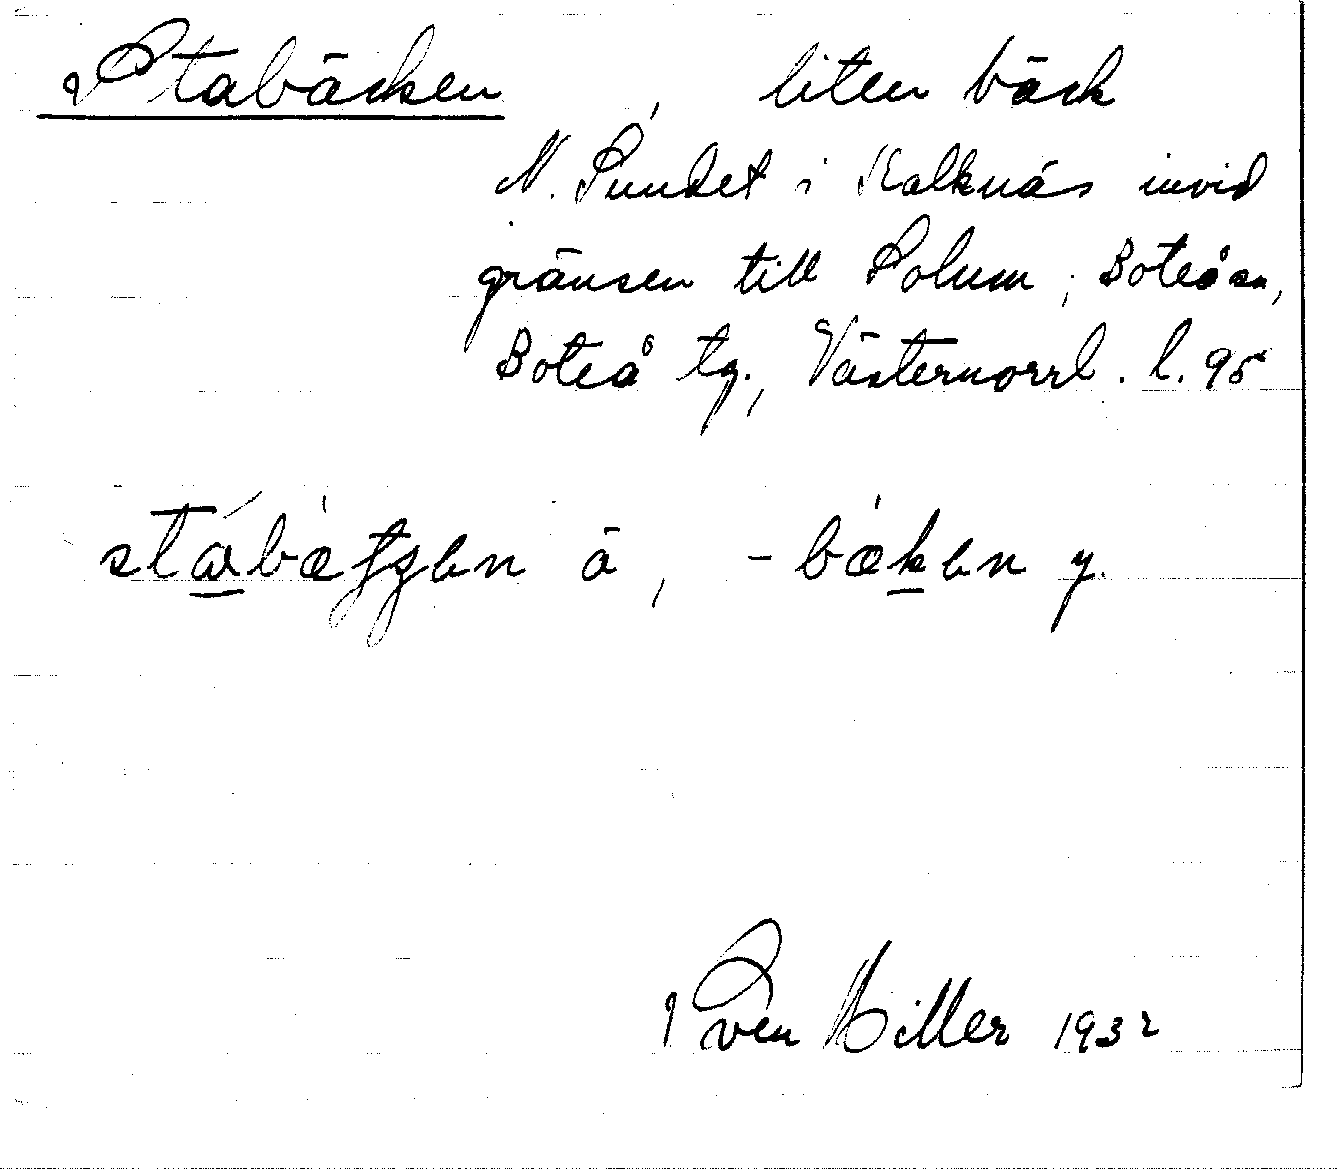 Stabäcken, liten bäck
N. Sundet i Kalknäs invid
gränsen till Solum, Boteå sn,
Boteå tg., Västernorrl. l. 95
ä, y.
Sven Hiller 1932